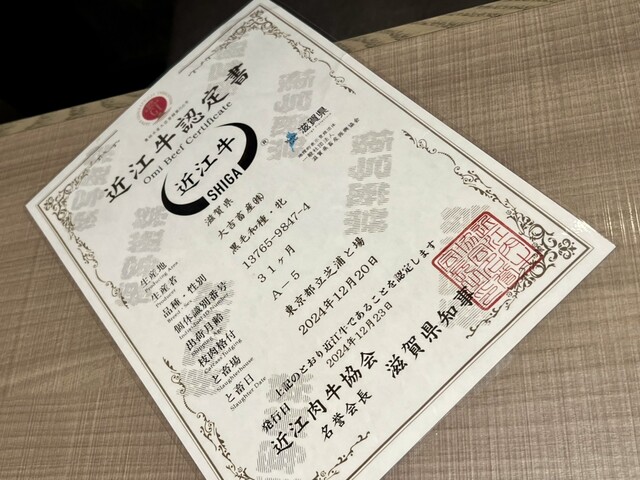 近江牛認定書
Omi Beef Certificate
近江牛
SHIGA
®
滋賀県
生産地 滋賀県
生産者 大吉畜産㈱
Producer
品種・性別 黒毛和種・北
個体識別番号 13765-9847-4
出荷月齢 31ヶ月
枝肉格付 A-5
Carcass Judging
と畜場 東京都立芝浦と場
Slaughterhouse
と畜日 2024年12月20日
Slaughter Date
上記のとおり近江牛であることを認定します
発行日 2024年12月23日
近江肉牛協会
名誉会長 滋賀県知事